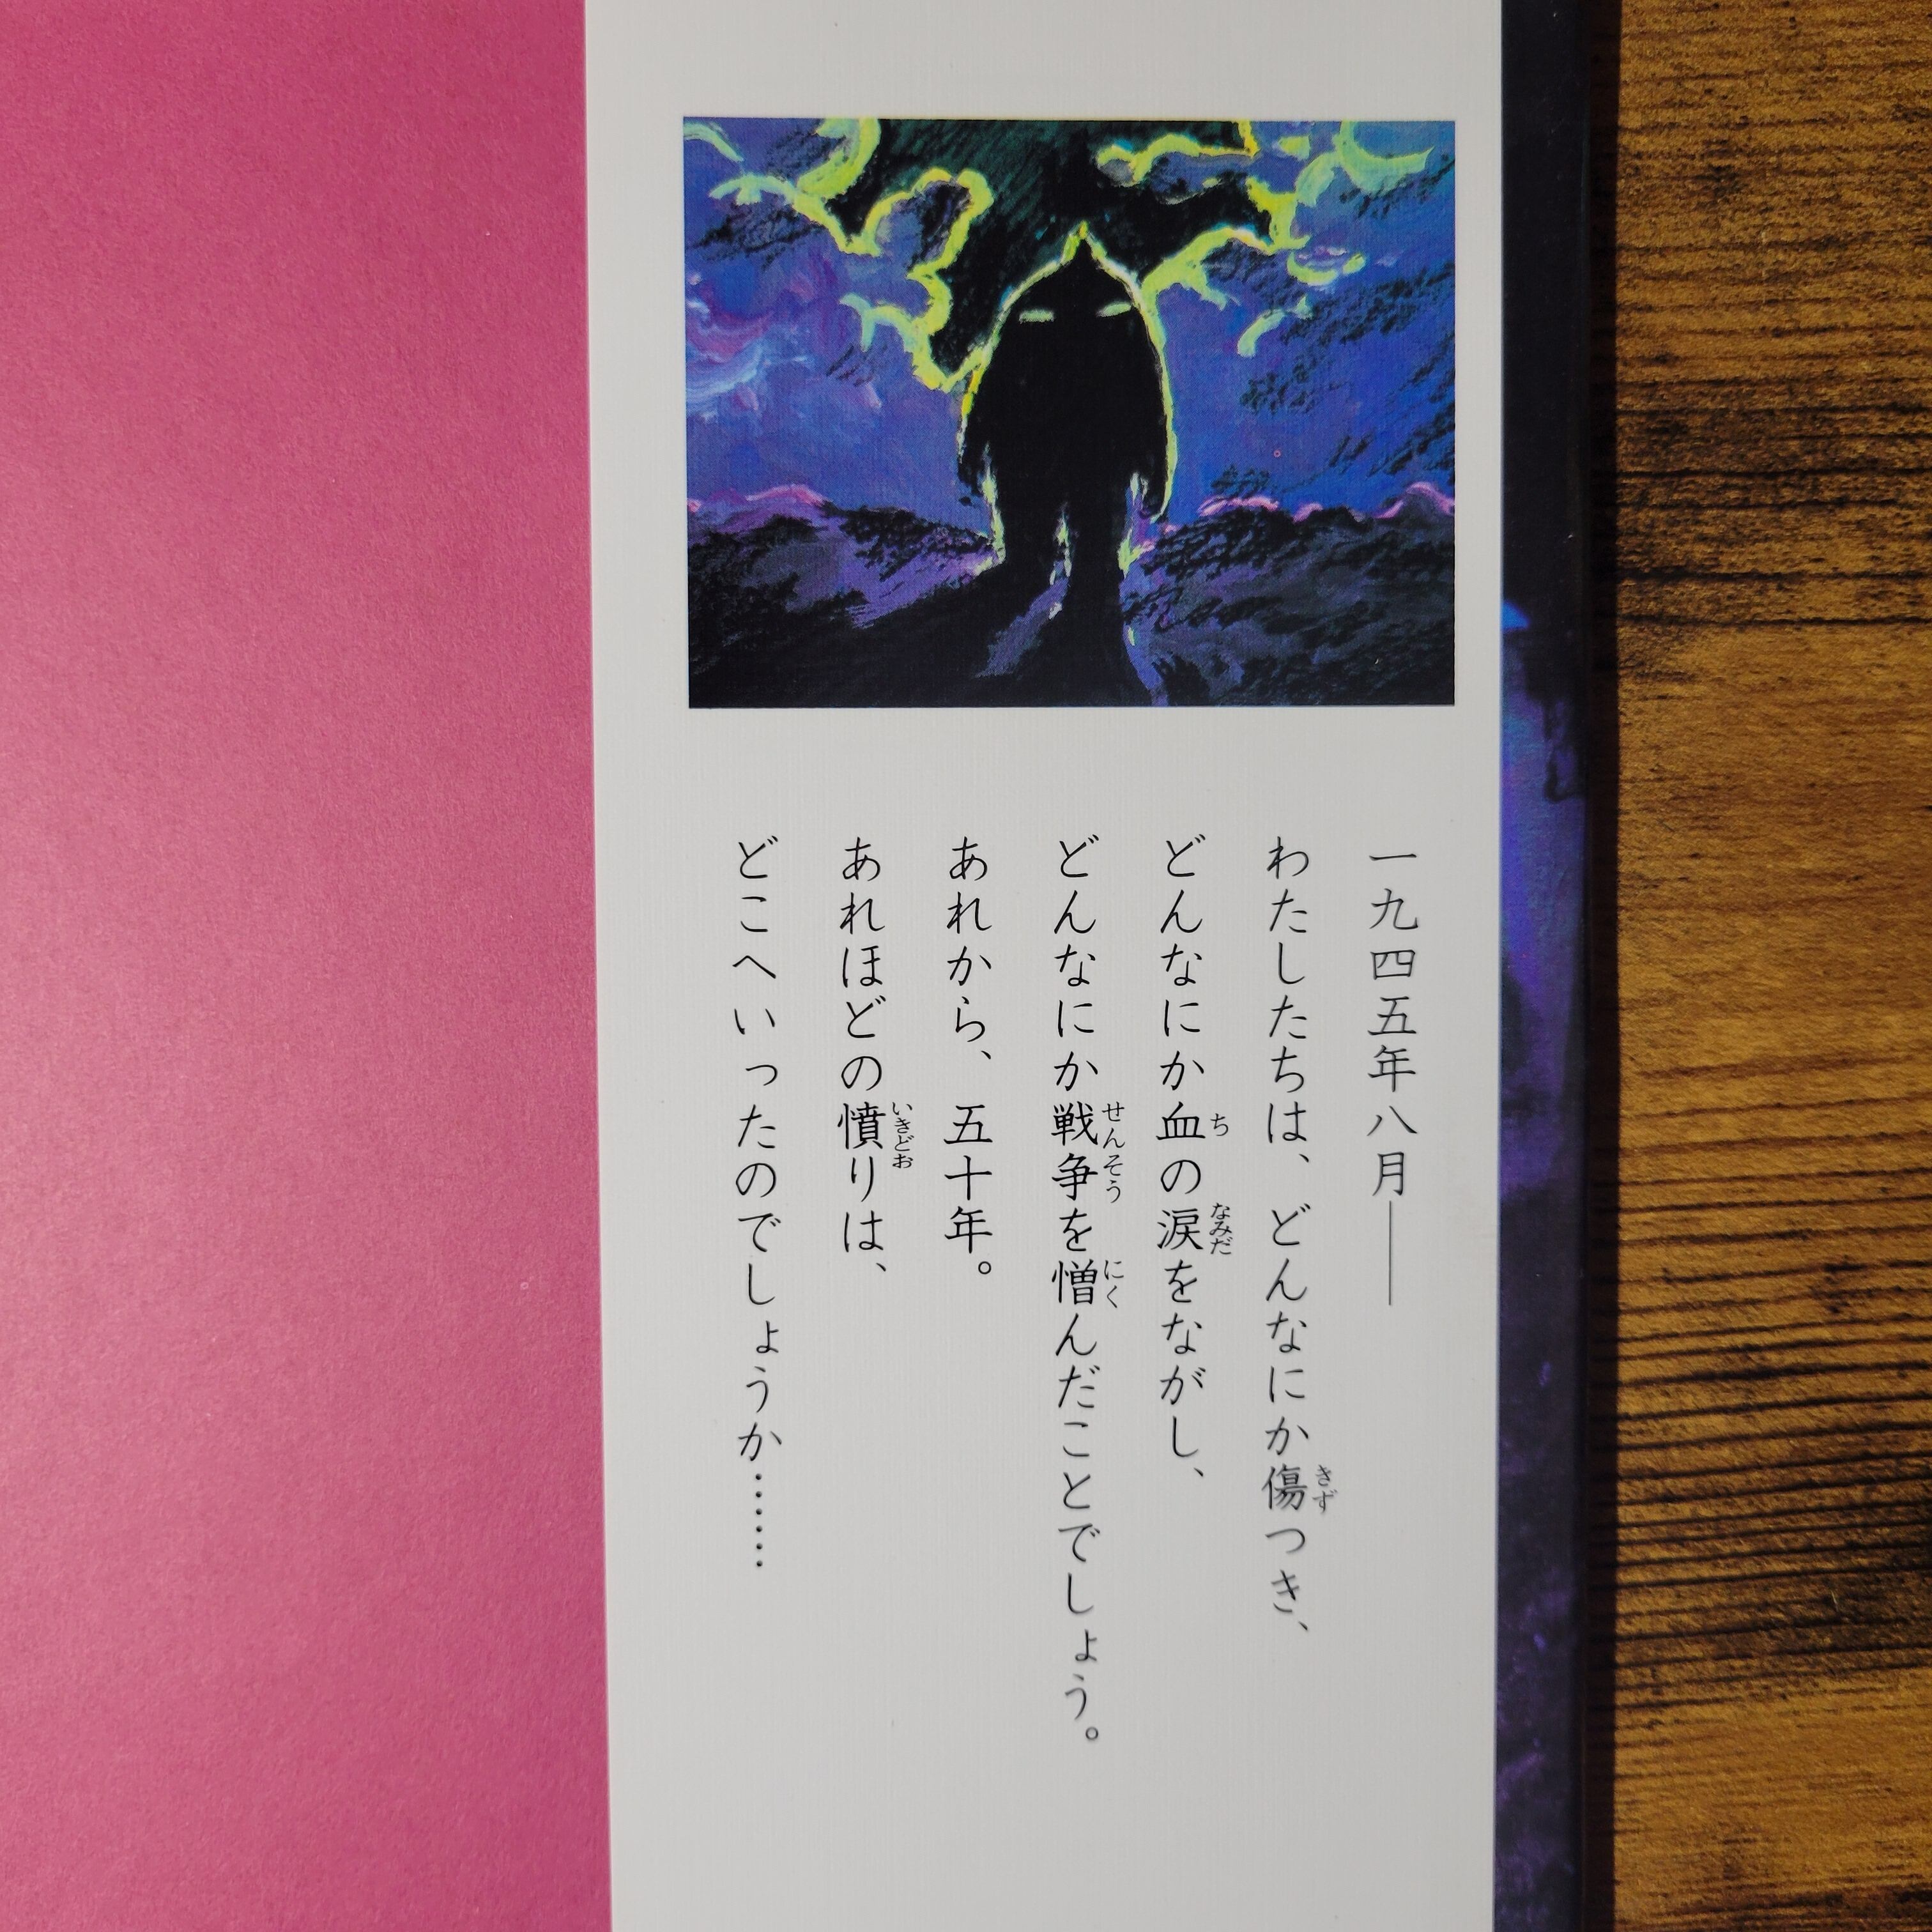 一九四五年八月――
わたしたちは、どんなにか傷つき、
どんなにか血の涙をながし、
どんなにか戦争を憎んだことでしょう。
あれから、五十年。
あれほどの憤りは、
どこへいったのでしょうか……